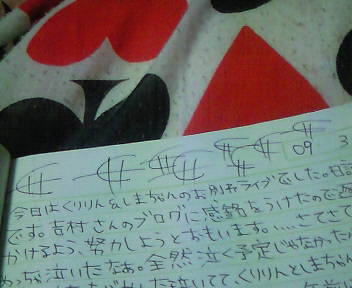 09 3
今日はくりりん&しまちゃんのお別れライブでした。の日記
です。吉村さんのブログに感銘をうけたので
かけるよう、努力しようとおもいます。…さてさて
めっちゃ泣いたなぁ。全然泣く予定じゃなかった
泣いてて、くりりんとしまちゃん